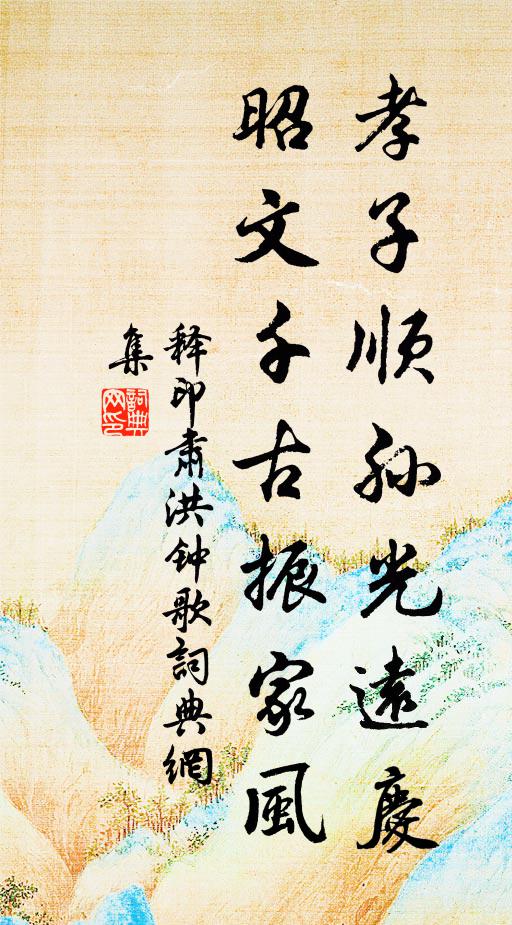 孝子顺孙光遠慶
昭文千古振家風
释印肃洪钟歌詞典網
集
詞典网印